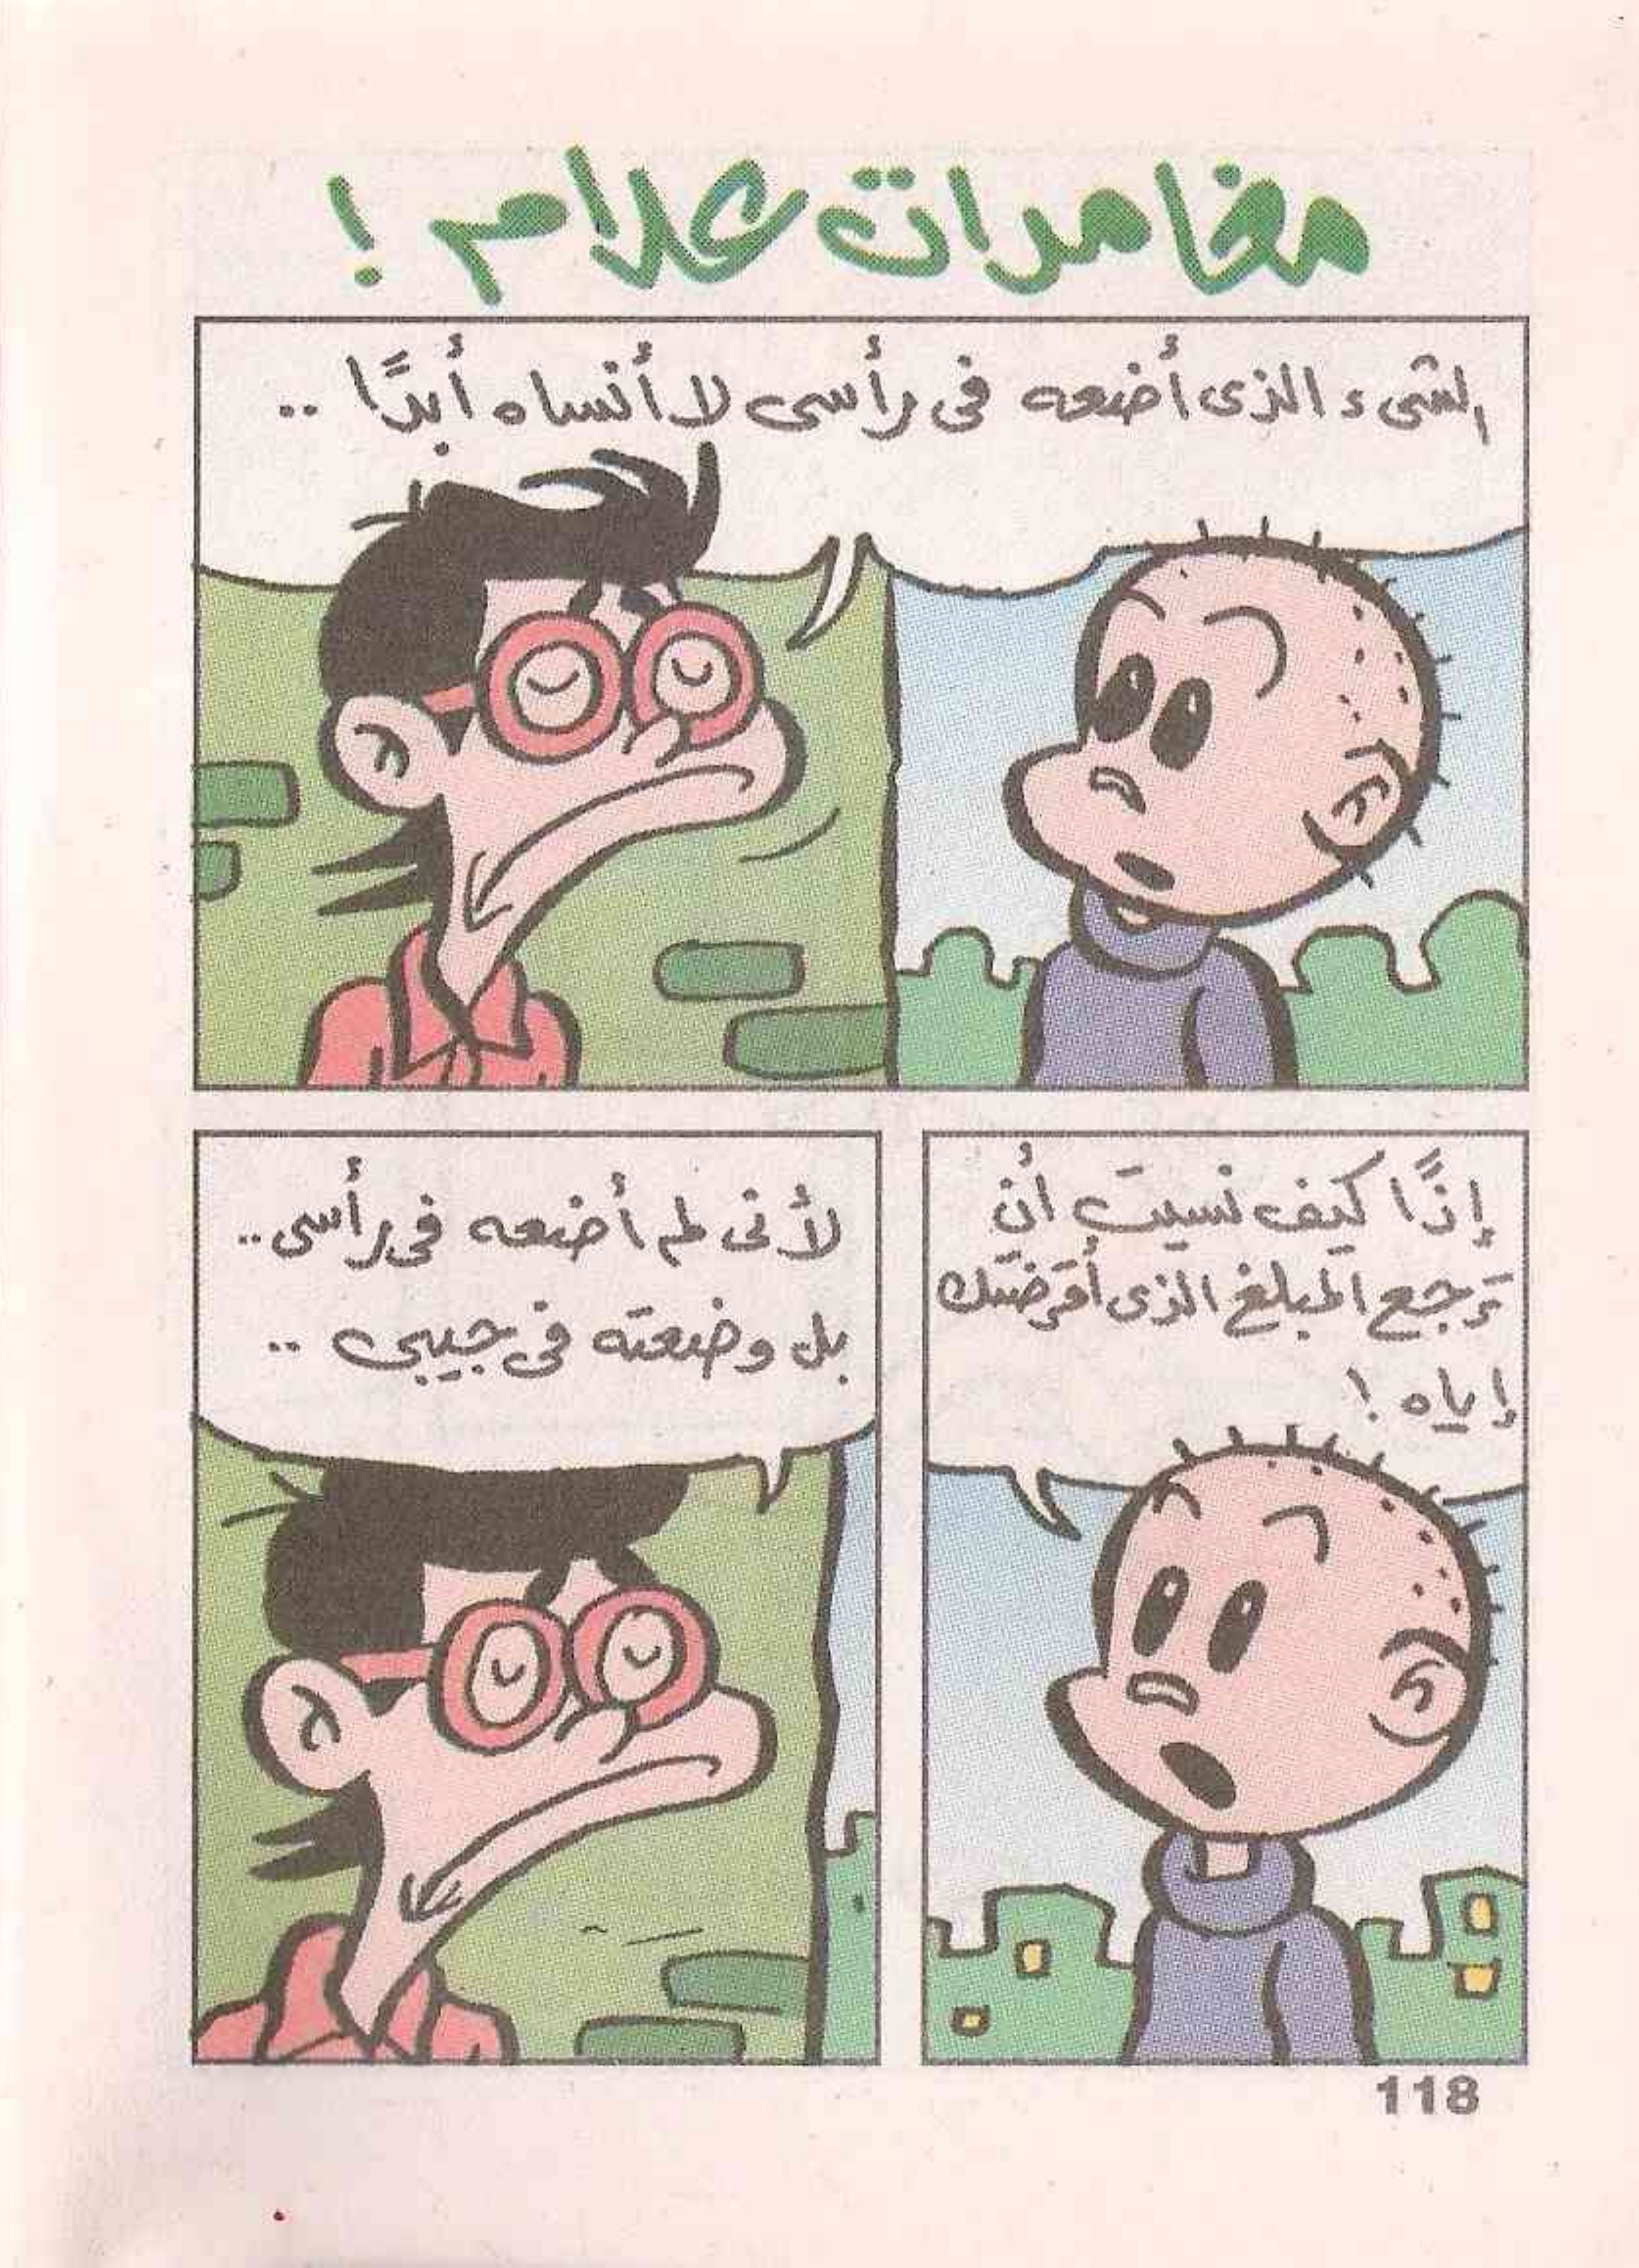 مغامرات علام !
الشىء الذى أضعه فى رأسى لا أنساه أبدًا ..
إذًا كيف نسيتَ أن
تَرجع المبلغ الذى أقرَضتك
إياه !
لأنى لم أضعه فى رأسى ..
بل وضعته فى جيبى ..
118